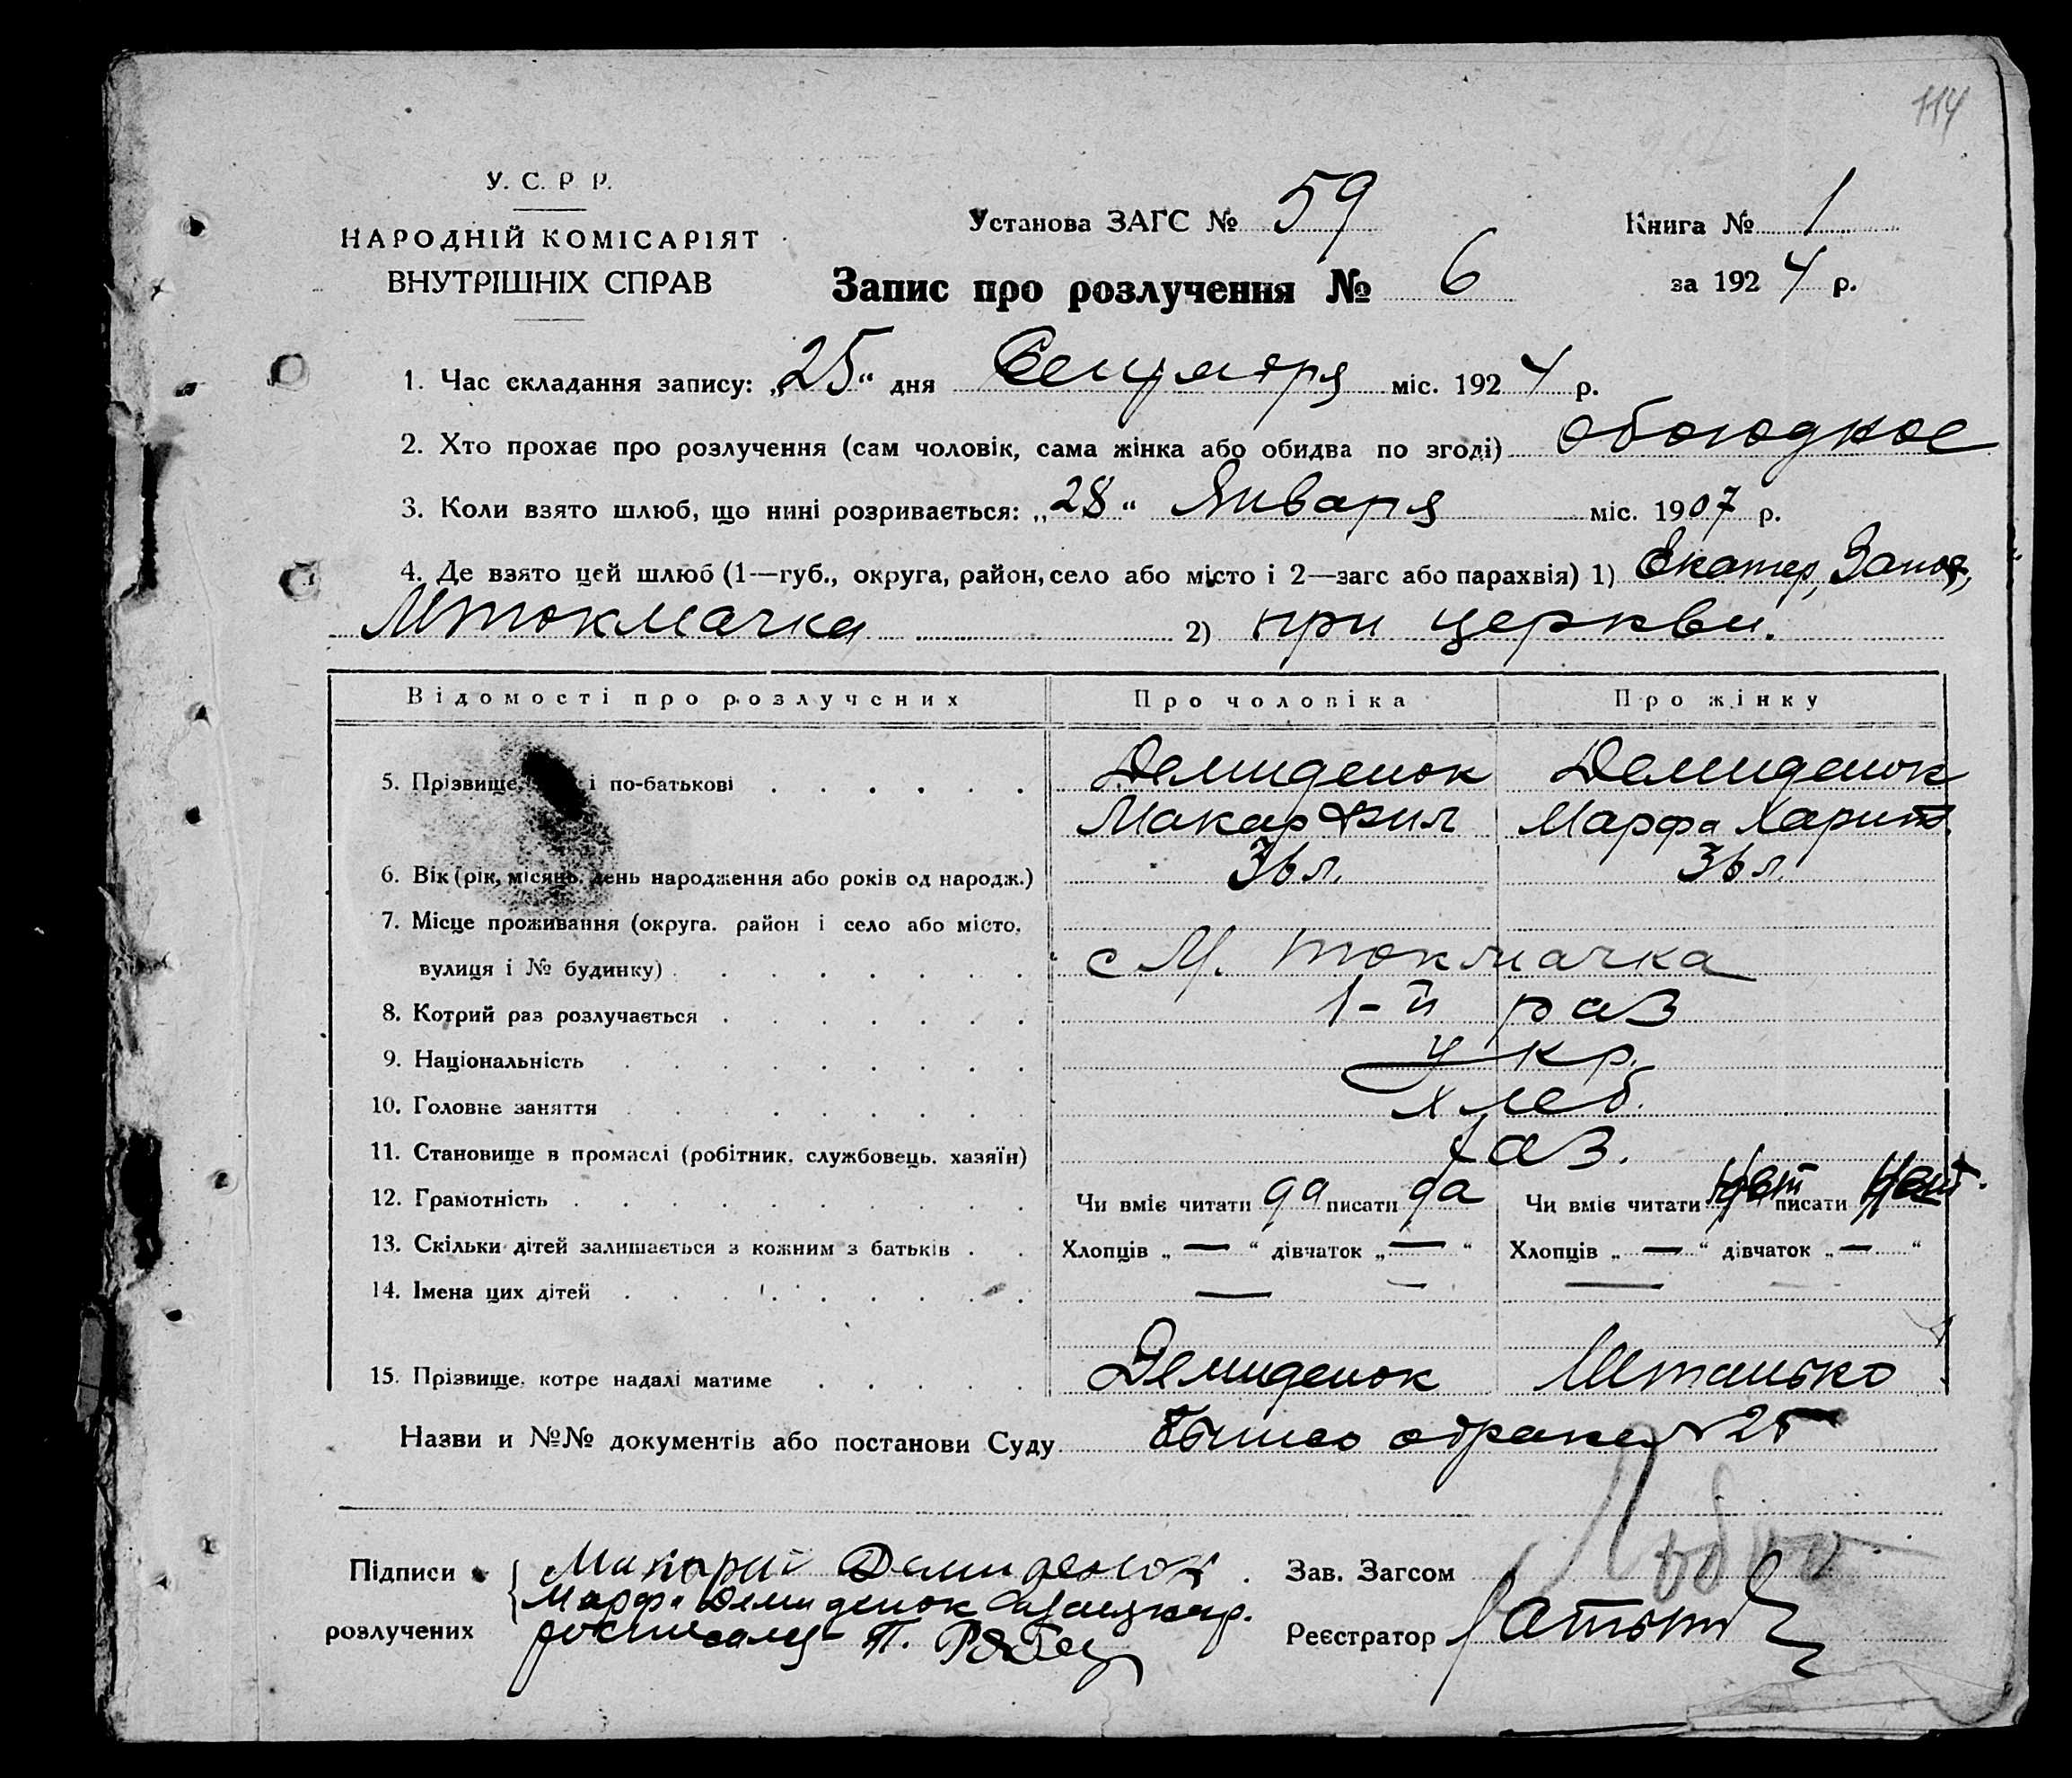 114
У. С. Р Р.
НАРОДНІЙ КОМІСАРІЯТ
ВНУТРІШНІХ СПРАВ
Установа ЗАГС № 59
Книга № 1
Запис про розлучення № 6
за 1924 р.
1. Час складання запису: „25“ дня Сентября міс. 1924 р.
2. Хто прохає про розлучення (сам чоловік, сама жінка або обидва по згоді) обоюдное
3. Коли взято шлюб, що нині розривається: „28“ Января міс. 1907 р.
4. Де взято цей шлюб (1—губ., округа, район, село або місто і 2—загс або парахвія) 1) Екатер, Запор,
Мтокмачка 2) при церкви.
Відомості про розлучених Про чоловіка Про жінку
5. Прізвище, і по-батькові Демиденок Демиденок
Макар Фил Марфа Харит.
6. Вік (рік, місяць, день народження або років од народж.) 36 л. 36 л.
7. Місце проживання (округа. район і село або місто,
вулиця і № будинку) с М. Токмачка
8. Котрий раз розлучається 1-й раз
9. Національність укр.
10. Головне заняття хлеб.
11. Становище в промаслі (робітник, службовець, хазяїн) хаз.
12. Грамотність Чи вміє читати да писати да Чи вміє читати нет писати нет.
13. Скільки дітей залишається з кожним з батьків Хлопців „—“ дівчаток „—“ Хлопців „—“ дівчаток „—“
14. Імена цих дітей — — — —
15. Прізвище, котре надалі матиме Демиденок Штанько
Назви и №№ документів або постанови Суду о браке № 25
Підписи Демиденок
Марфа Демиденок
розлучених П. Рябец
Зав. Загсом
Реєстратор